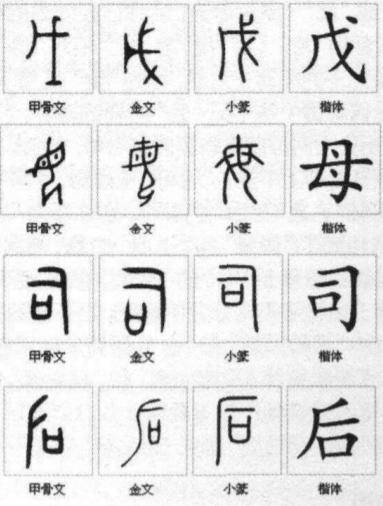 戊
甲骨文 金文 小篆 楷体
母
甲骨文 金文 小篆 楷体
司 司 司 司
甲骨文 金文 小篆 楷体
后 后 后 后
甲骨文 金文 小篆 楷体